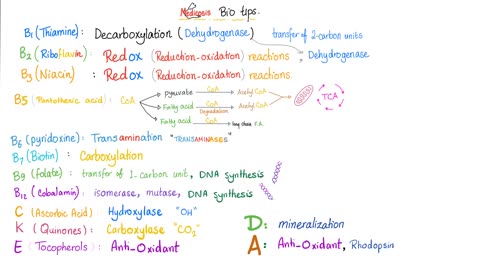 Medicosis Bio tips.
B1 (Thiamine): Decarboxylation (Dehydrogenase) transfer of 2-carbon units
B2 (Riboflavin): Redox (Reduction-oxidation) reactions : Dehydrogenase
B3 (Niacin) : Redox (Reduction-oxidation) reactions
B5 (Pantothenic acid): CoA
Pyruvate CoA Acetyl CoA
Fatty acid CoA Degradation Acetyl CoA
Fatty acid CoA long chain F.A.
TCA
B6 (pyridoxine): Transamination "TRANSAMINASES"
B7 (Biotin): Carboxylation
B9 (folate): transfer of 1-carbon unit, DNA synthesis
B12 (Cobalamin): isomerase, mutase, DNA synthesis
C (Ascorbic Acid) Hydroxylase "OH"
K (Quinones): Carboxylase "CO2"
E (Tocopherols) Anti-Oxidant
D: mineralization
A: Anti-Oxidant, Rhodopsin